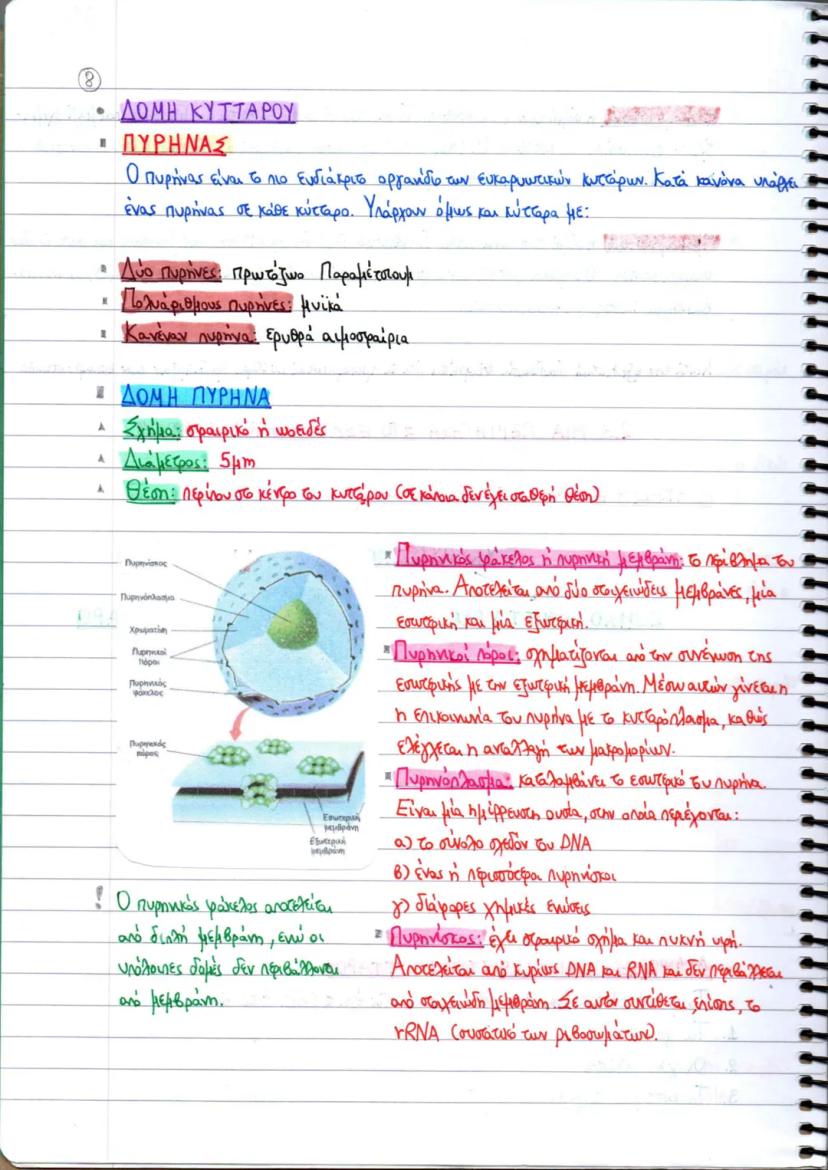 8
ΔΟΜΗ ΚΥΤΤΑΡΟΥ
ΠΥΡΗΝΑΣ
Ο πυρήνας είναι το πιο ευδιάκριτο οργανίδιο των ευκαρυωτικών κυττάρων. Κατά κανόνα υπάρχει
ένας πυρήνας σε κάθε κύτταρο. Υπάρχουν όμως και κύτταρα με:
Δύο πυρήνες: πρωτόζωο Παραμέτσιουμ
Πολυάριθμους πυρήνες: μυϊκά
Κανέναν πυρήνα: ερυθρά αιμοσφαίρια
ΔΟΜΗ ΠΥΡΗΝΑ
Σχήμα: σφαιρικό ή ωοειδές
Διάμετρος: 5μm
Θέση: περίπου στο κέντρο του κυττάρου (σε κάποια δεν έχει σταθερή θέση)
Πυρηνίσκος
Πυρηνόπλασμα
Χρωματίνη
Πυρηνικοί
πόροι
Πυρηνικός
φάκελος
Πυρηνικός
πόρος
Εσωτερική
μεμβράνη
Εξωτερική
μεμβράνη
! Ο πυρηνικός φάκελος αποτελείται
από διπλή μεμβράνη, ενώ οι
υπόλοιπες δομές δεν περιβάλλονται
από μεμβράνη.
Πυρηνικός φάκελος ή πυρηνική μεμβράνη: το περίβλημα του
πυρήνα. Αποτελείται από δύο στοιχειώδεις μεμβράνες, μία
εσωτερική και μία εξωτερική.
Πυρηνικοί πόροι: σχηματίζονται από την συνένωση της
εσωτερικής με την εξωτερική μεμβράνη. Μέσω αυτών γίνεται η
η επικοινωνία του πυρήνα με το κυτταρόπλασμα, καθώς
ελέγχεται η ανταλλαγή των μακρομορίων.
Πυρηνόπλασμα: καταλαμβάνει το εσωτερικό του πυρήνα.
Είναι μία ημίρρευστη ουσία, στην οποία περιέχονται:
α) το σύνολο σχεδόν του DNA
β) ένας ή περισσότεροι πυρηνίσκοι
γ) διάφορες χημικές ενώσεις
Πυρηνίσκος: έχει σφαιρικό σχήμα και πυκνή υφή.
Αποτελείται από κυρίως DNA και RNA και δεν περιβάλλεται
από στοιχειώδη μεμβράνη. Σε αυτόν συντίθεται, επίσης, το
rRNA (συστατικό των ριβοσωμάτων).